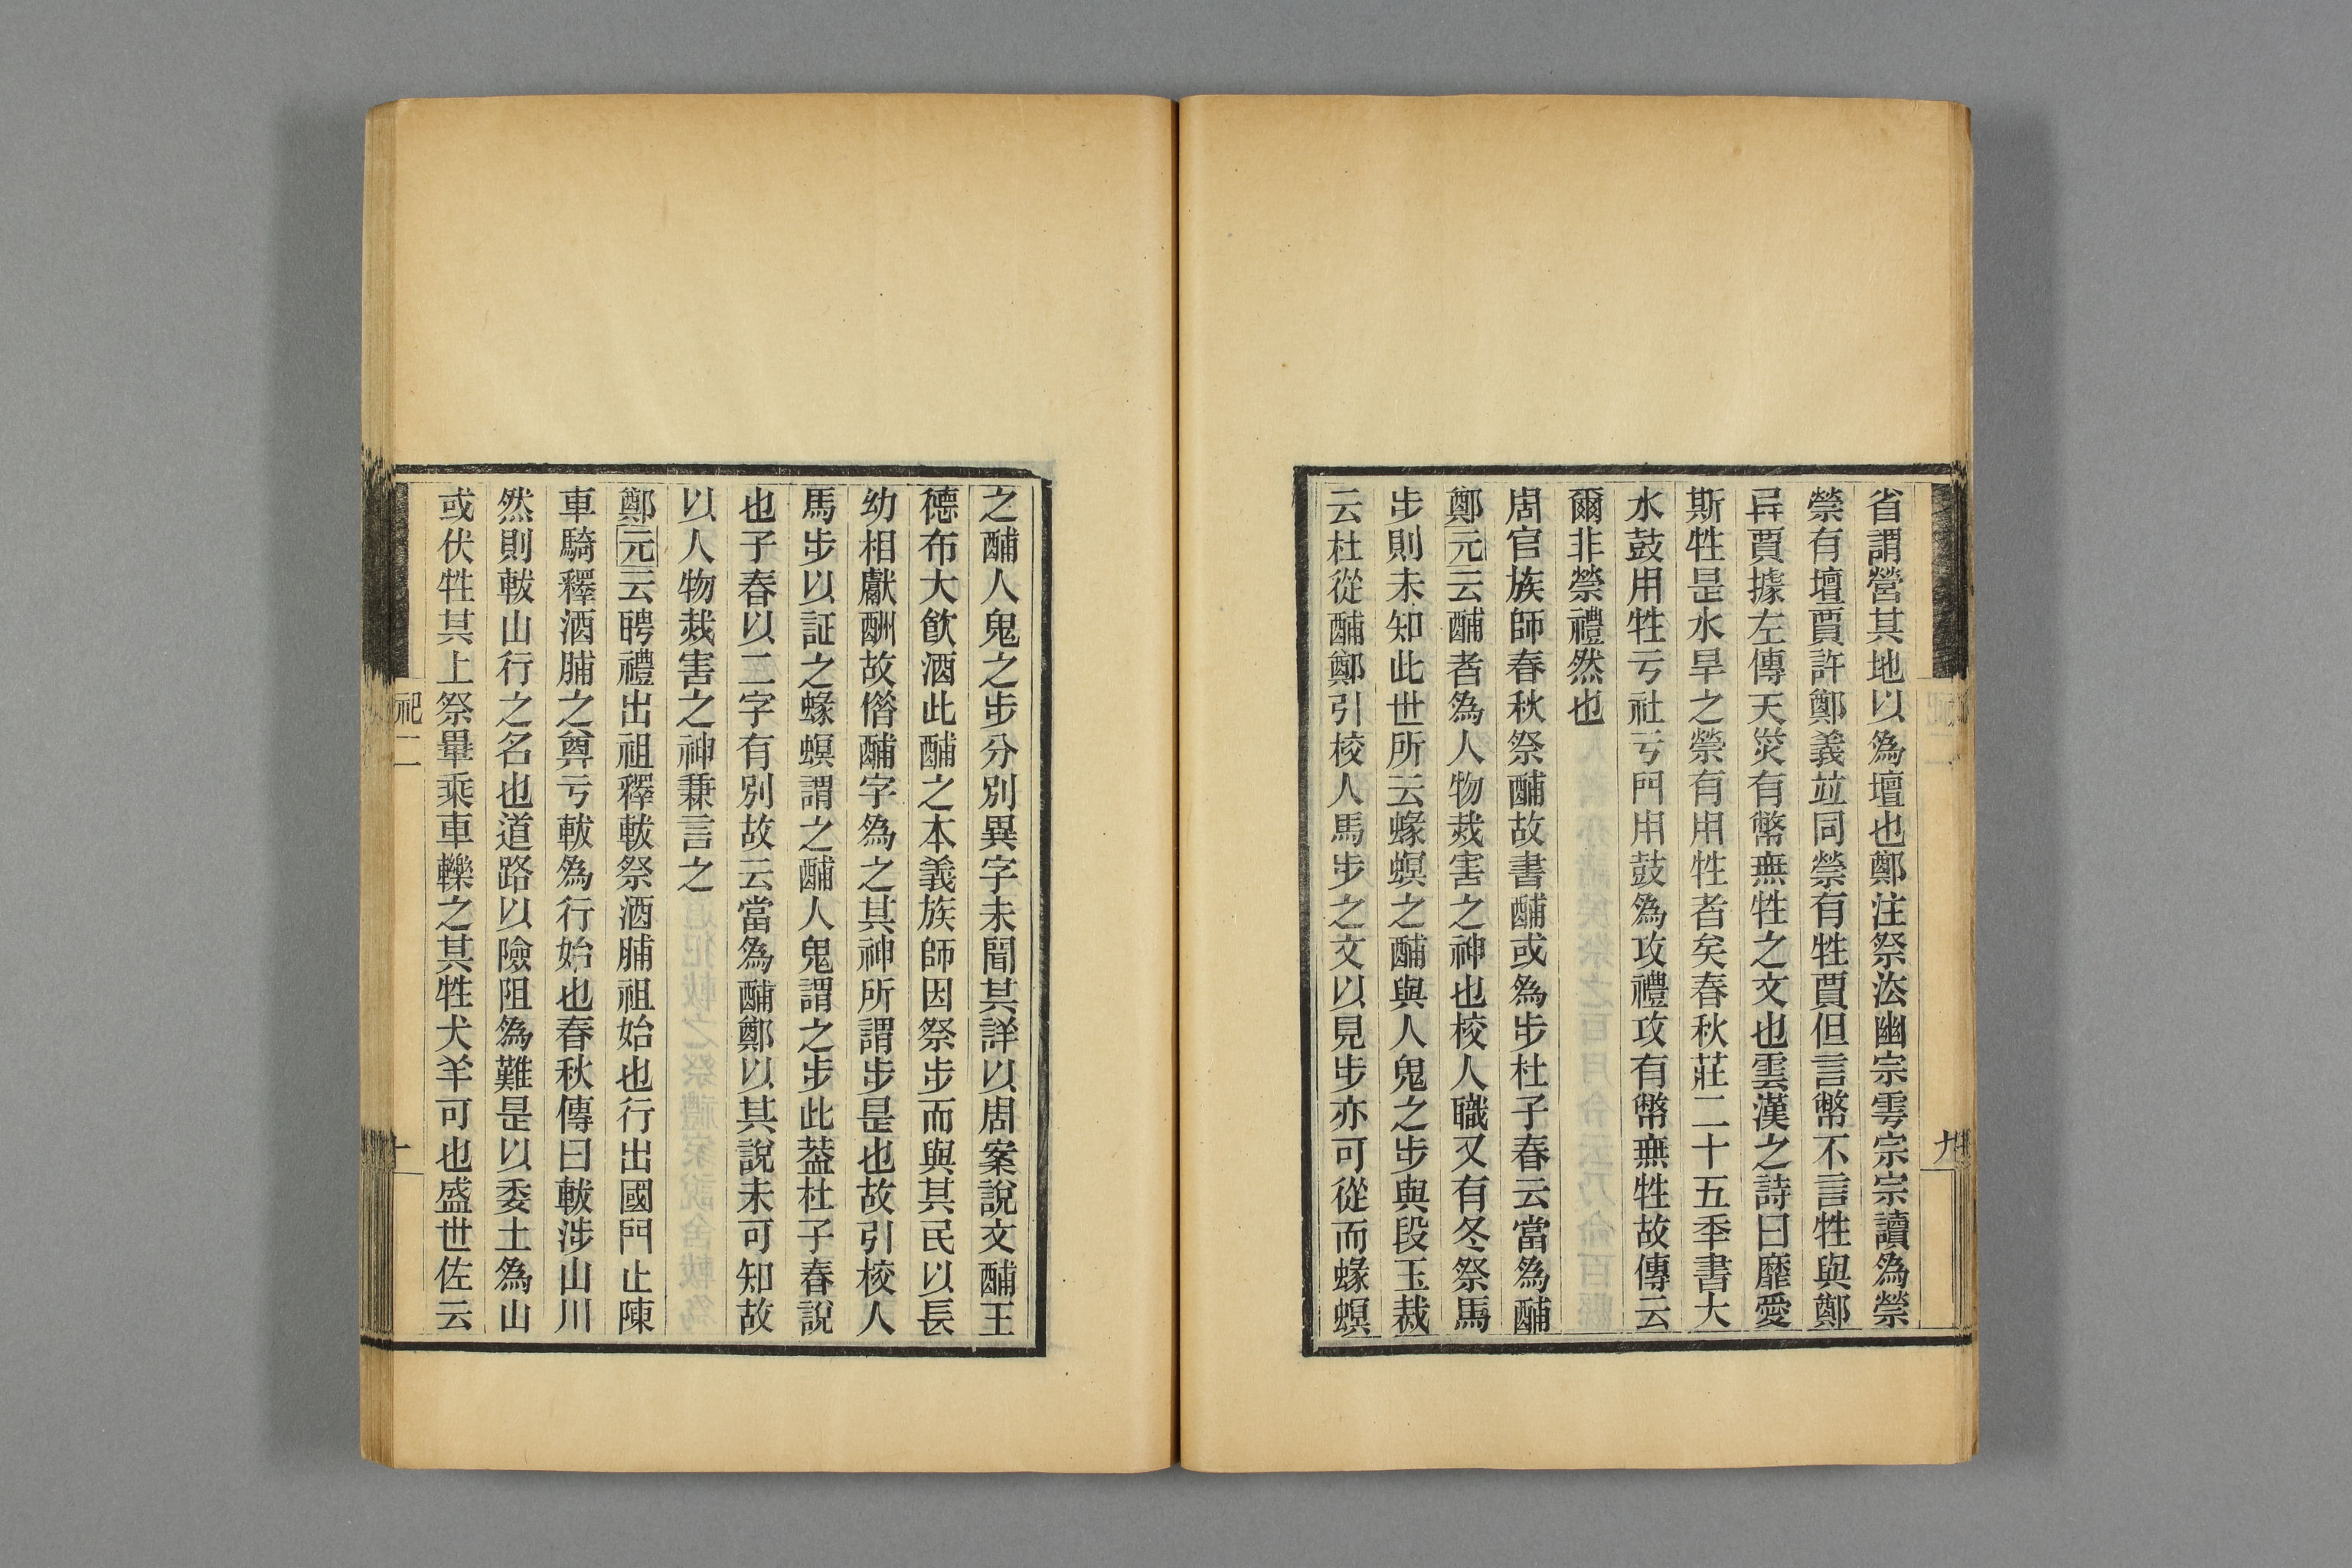 省謂營其地以爲壇也鄭注祭法幽宗雩宗宗讀爲禜
禜有壇賈許鄭義竝同禜有牲賈但言幣不言牲與鄭
异賈據左傳天災有幣無牲之文也雲漢之詩曰靡愛
斯牲是水旱之禜有用牲者矣春秋莊二十五年書大
水鼓用牲亏社亏門用鼓爲攻禮攻有幣無牲故傳云
爾非禜禮然也
周官族師春秋祭酺故書酺或爲步杜子春云當爲酺
鄭元云酺者爲人物烖害之神也校人職又有冬祭馬
步則未知此世所云蝝螟之酺與人鬼之步與段玉裁
云杜從酺鄭引校人馬步之文以見步亦可從而蝝螟
九
之酺人鬼之步分別異字未聞其詳以周案說文酺王
德布大飮酒此酺之本義族師因祭步而與其民以長
幼相獻酬故偺酺字爲之其神所謂步是也故引校人
馬步以証之蝝螟謂之酺人鬼謂之步此葢杜子春說
也子春以二字有別故云當爲酺鄭以其說未可知故
以人物烖害之神兼言之
鄭元云聘禮出祖釋軷祭酒脯祖始也行出國門止陳
車騎釋酒脯之奠亏軷爲行始也春秋傳曰軷涉山川
然則軷山行之名也道路以險阻爲難是以委土爲山
或伏牲其上祭畢乘車轢之其牲犬羊可也盛世佐云
祀二
十